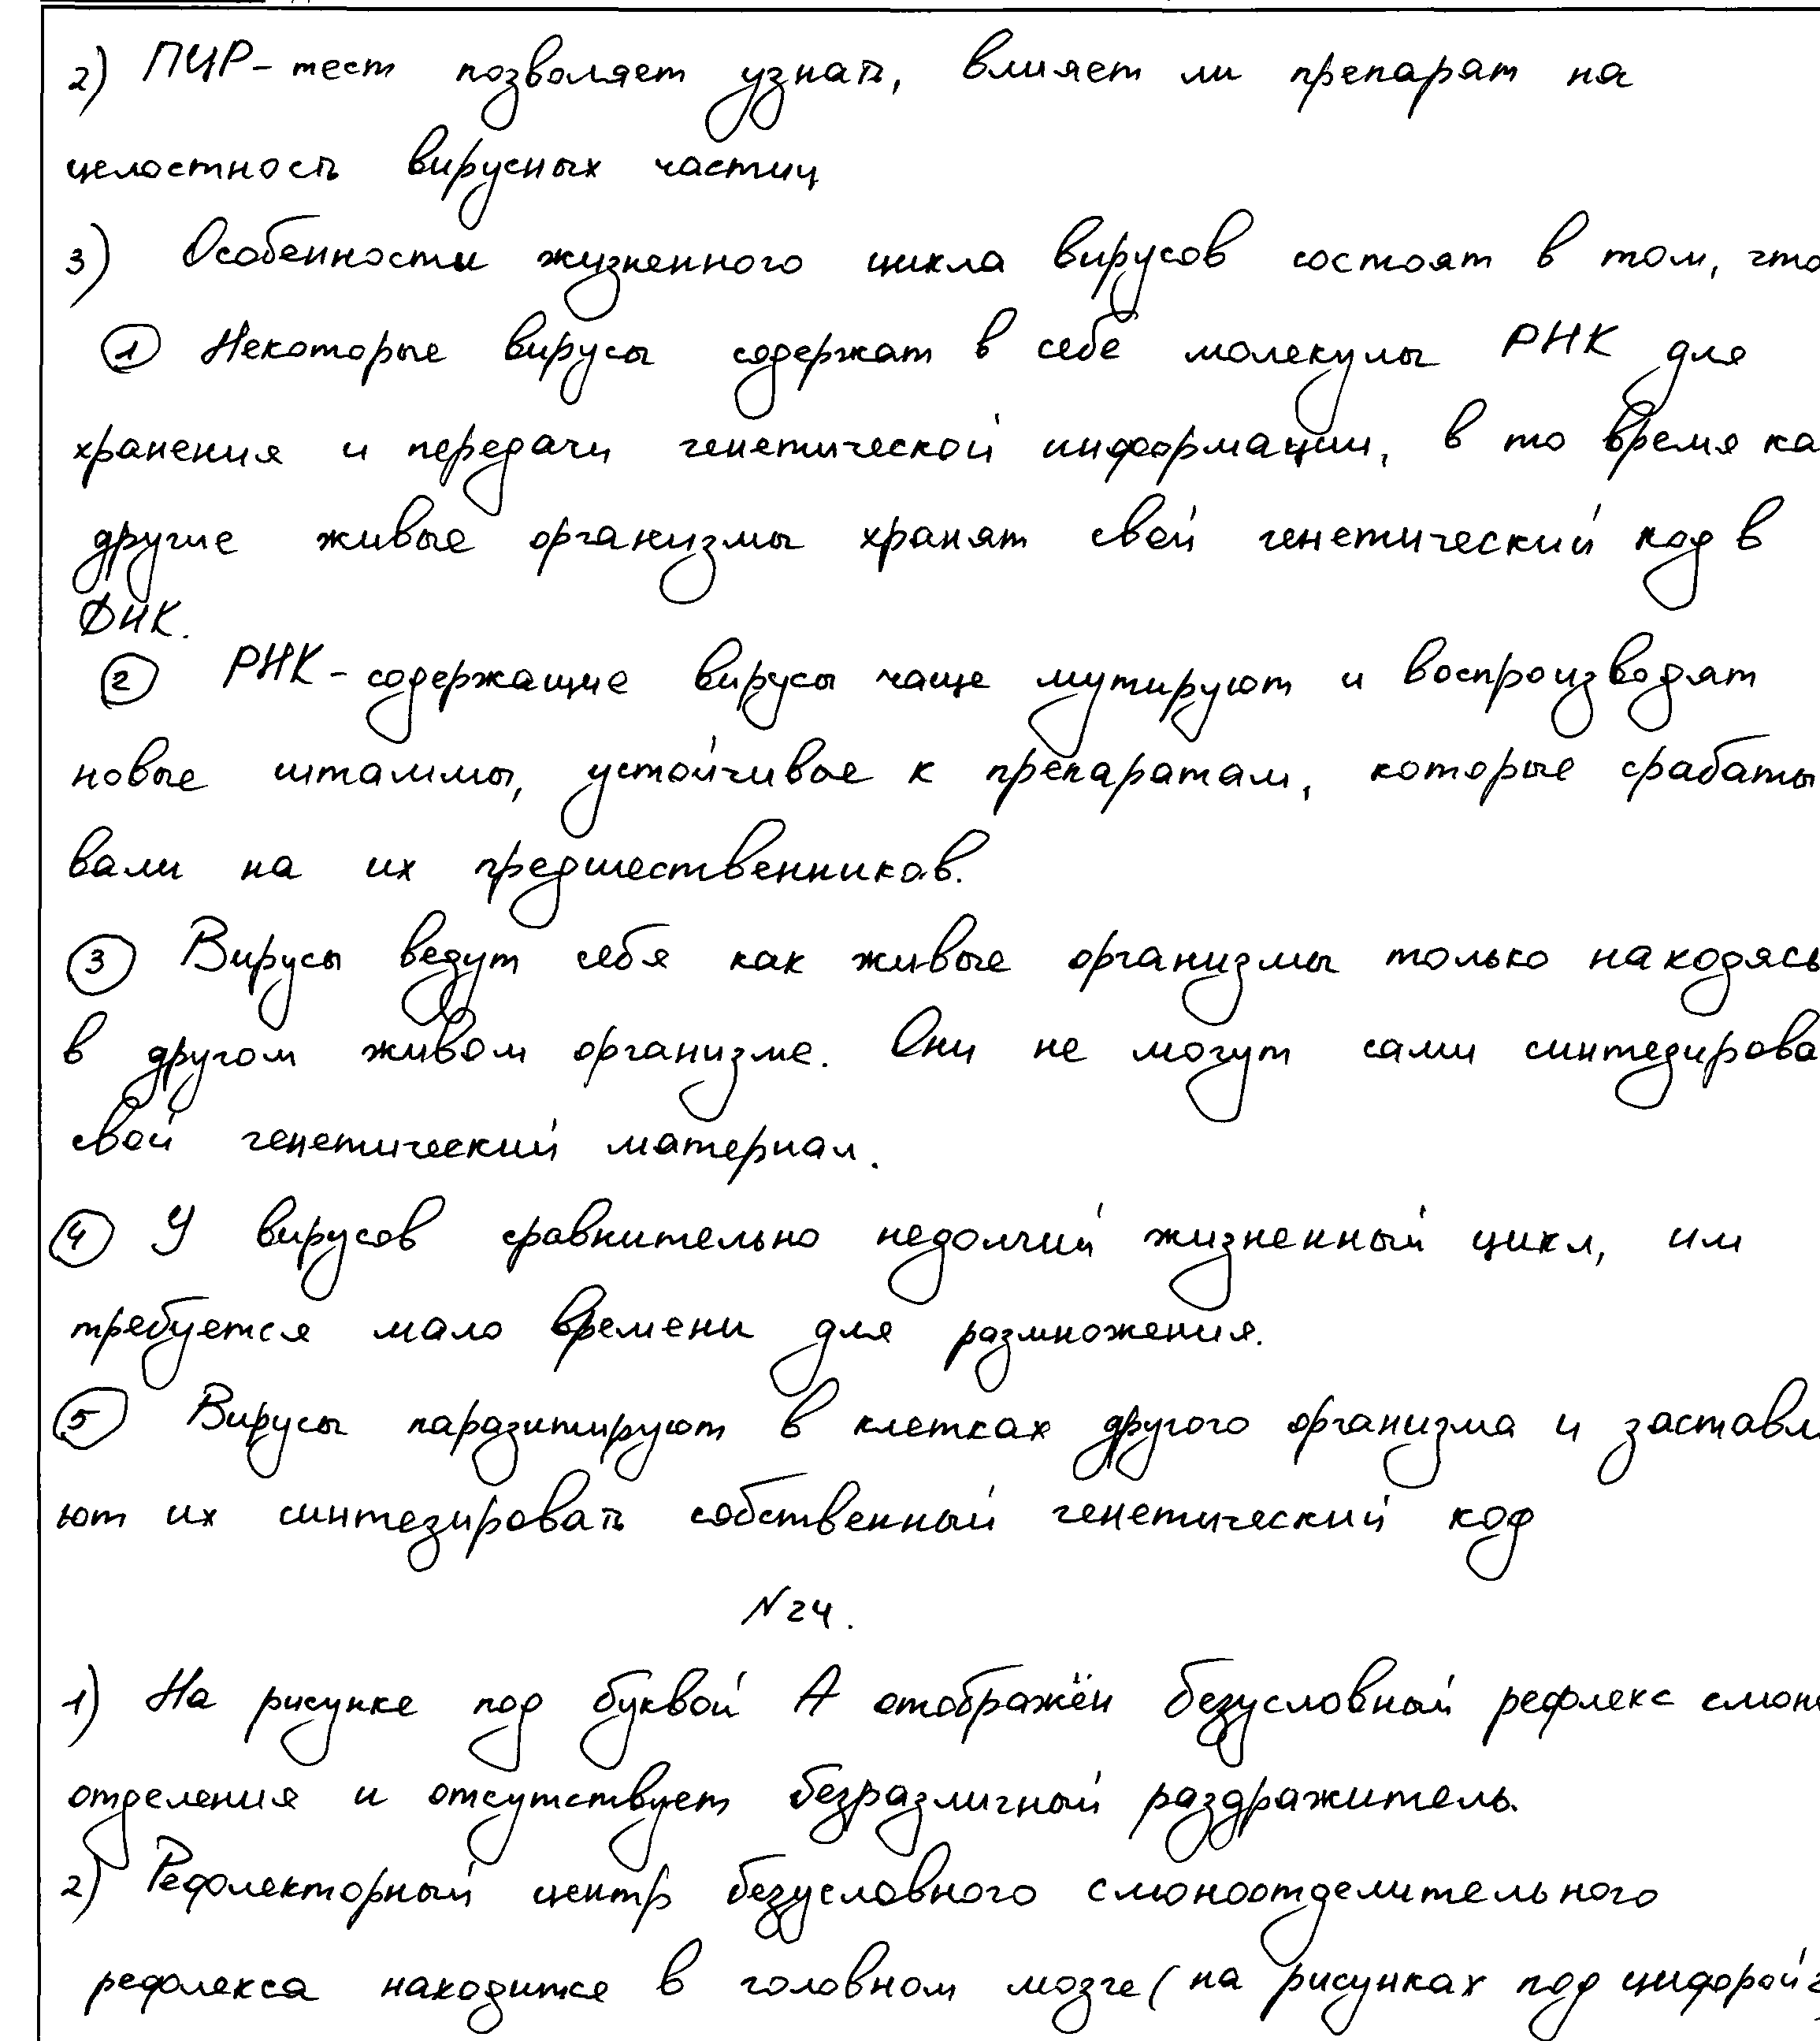 2) ПЦР-тест позволяет узнать, влияет ли препарат на
целостность вирусных частиц
3) Особенности жизненного цикла вирусов состоят в том, что
① Некоторые вирусы содержат в себе молекулы РНК для
хранения и передачи генетической информации, в то время ка
другие живые организмы хранят свой генетический код в
ДНК.
② РНК-содержащие вирусы чаще мутируют и воспроизводят
новые штаммы, устойчивое к препаратам, которые срабаты
вали на их предшественников.
③ Вирусы ведут себя как живые организмы только находясь
в другом живом организме. Они не могут сами синтедирова
свой генетический материал.
④ У вирусов сравнительно недолгий жизненный цикл, им
требуется мало времени для размножения.
⑤ Вирусы паразитируют в клетках другого организма и заставл
ют их синтезировать собственный генетический код
N24.
1) На рисунке под буквой А отображён безусловный рефлекс слюно
отделения и отсутствует безразличный раздражитель.
2) Рефлекторный центр безусловного слюноотделительного
рефлекса находится в головном мозге (на рисунках под цифрой